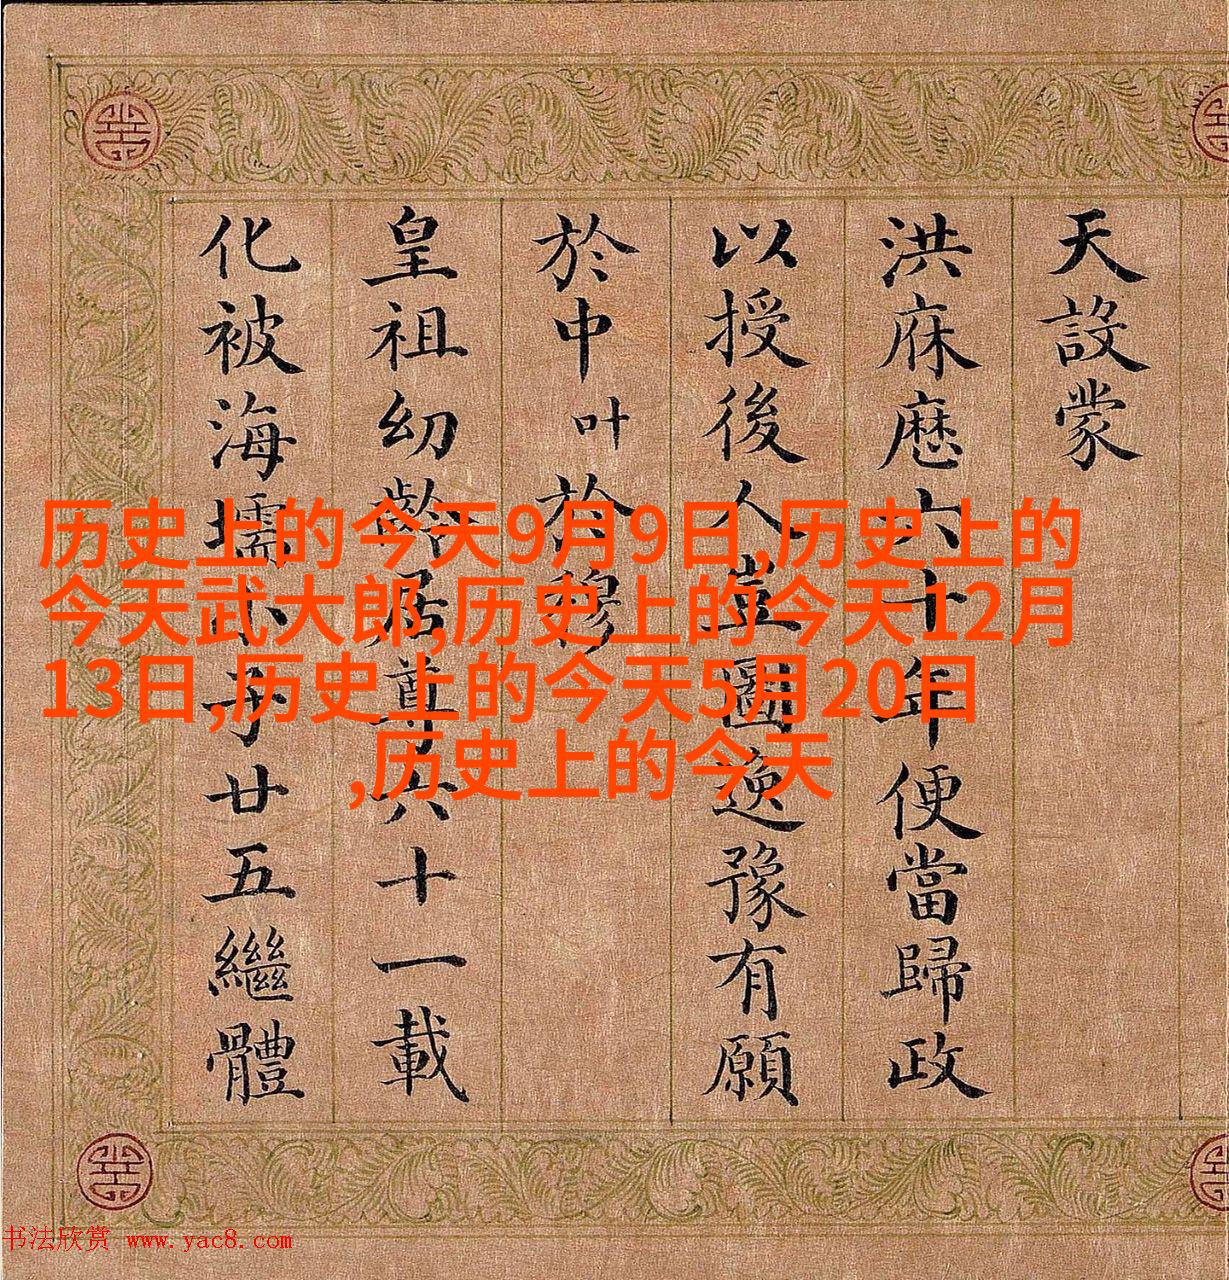 天設蒙
洪庥歷六十年便當歸政
以授後人豈圖逸豫有願
於中叶於穆
皇祖幼齡居尊六十一載
化被海壖小子廿五繼體
历史上的今天9月9日,历史上的
今天武大郎,历史上的今天12月
13日,历史上的今天5月20日
,历史上的今天
书法欣赏 www.yac8.com